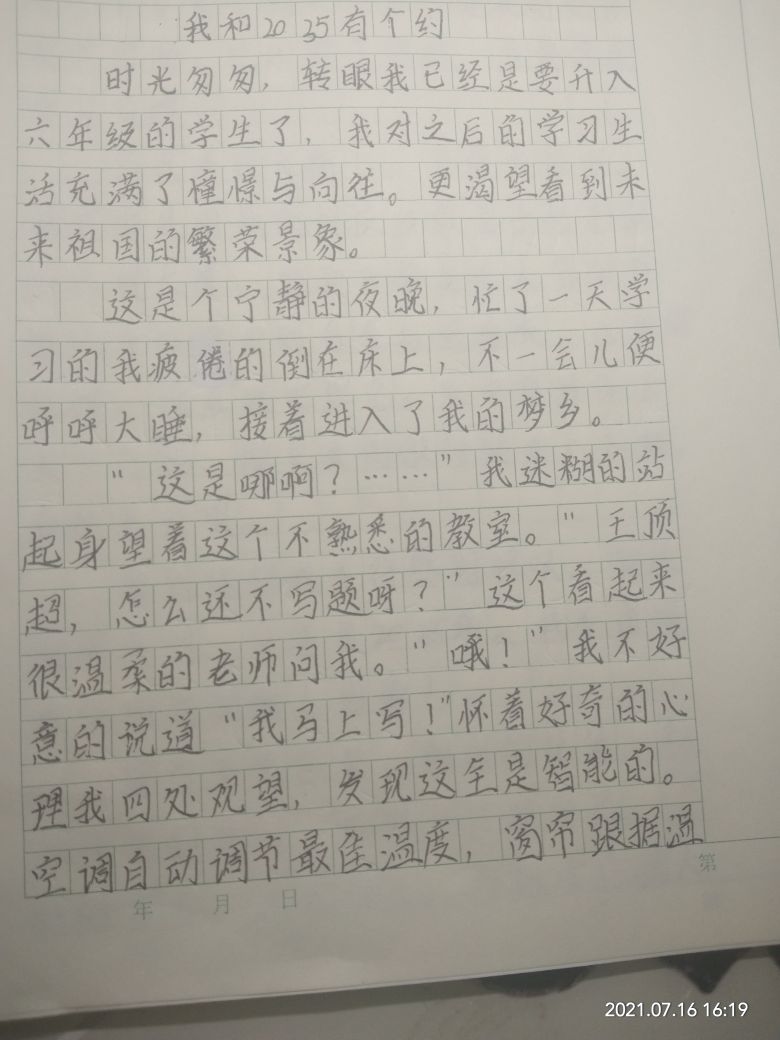 我和2035有个约
时光匆匆，转眼我已经是要升入
六年级的学生了，我对之后的学习生
活充满了憧憬与向往。更渴望看到未
来祖国的繁荣景象。
这是个宁静的夜晚，忙了一天学
习的我疲倦的倒在床上，不一会儿便
呼呼大睡，接着进入了我的梦乡。
“这是哪啊？……”我迷糊的站
起身望着这个不熟悉的教室。“王顶
超，怎么还不写题呀？”这个看起来
很温柔的老师问我。“哦！”我不好
意的说道“我马上写！”怀着好奇的心
理我四处观望，发现这全是智能的。
空调自动调节最佳温度，窗帘跟据温
第
年 月 日
2021.07.16 16:19